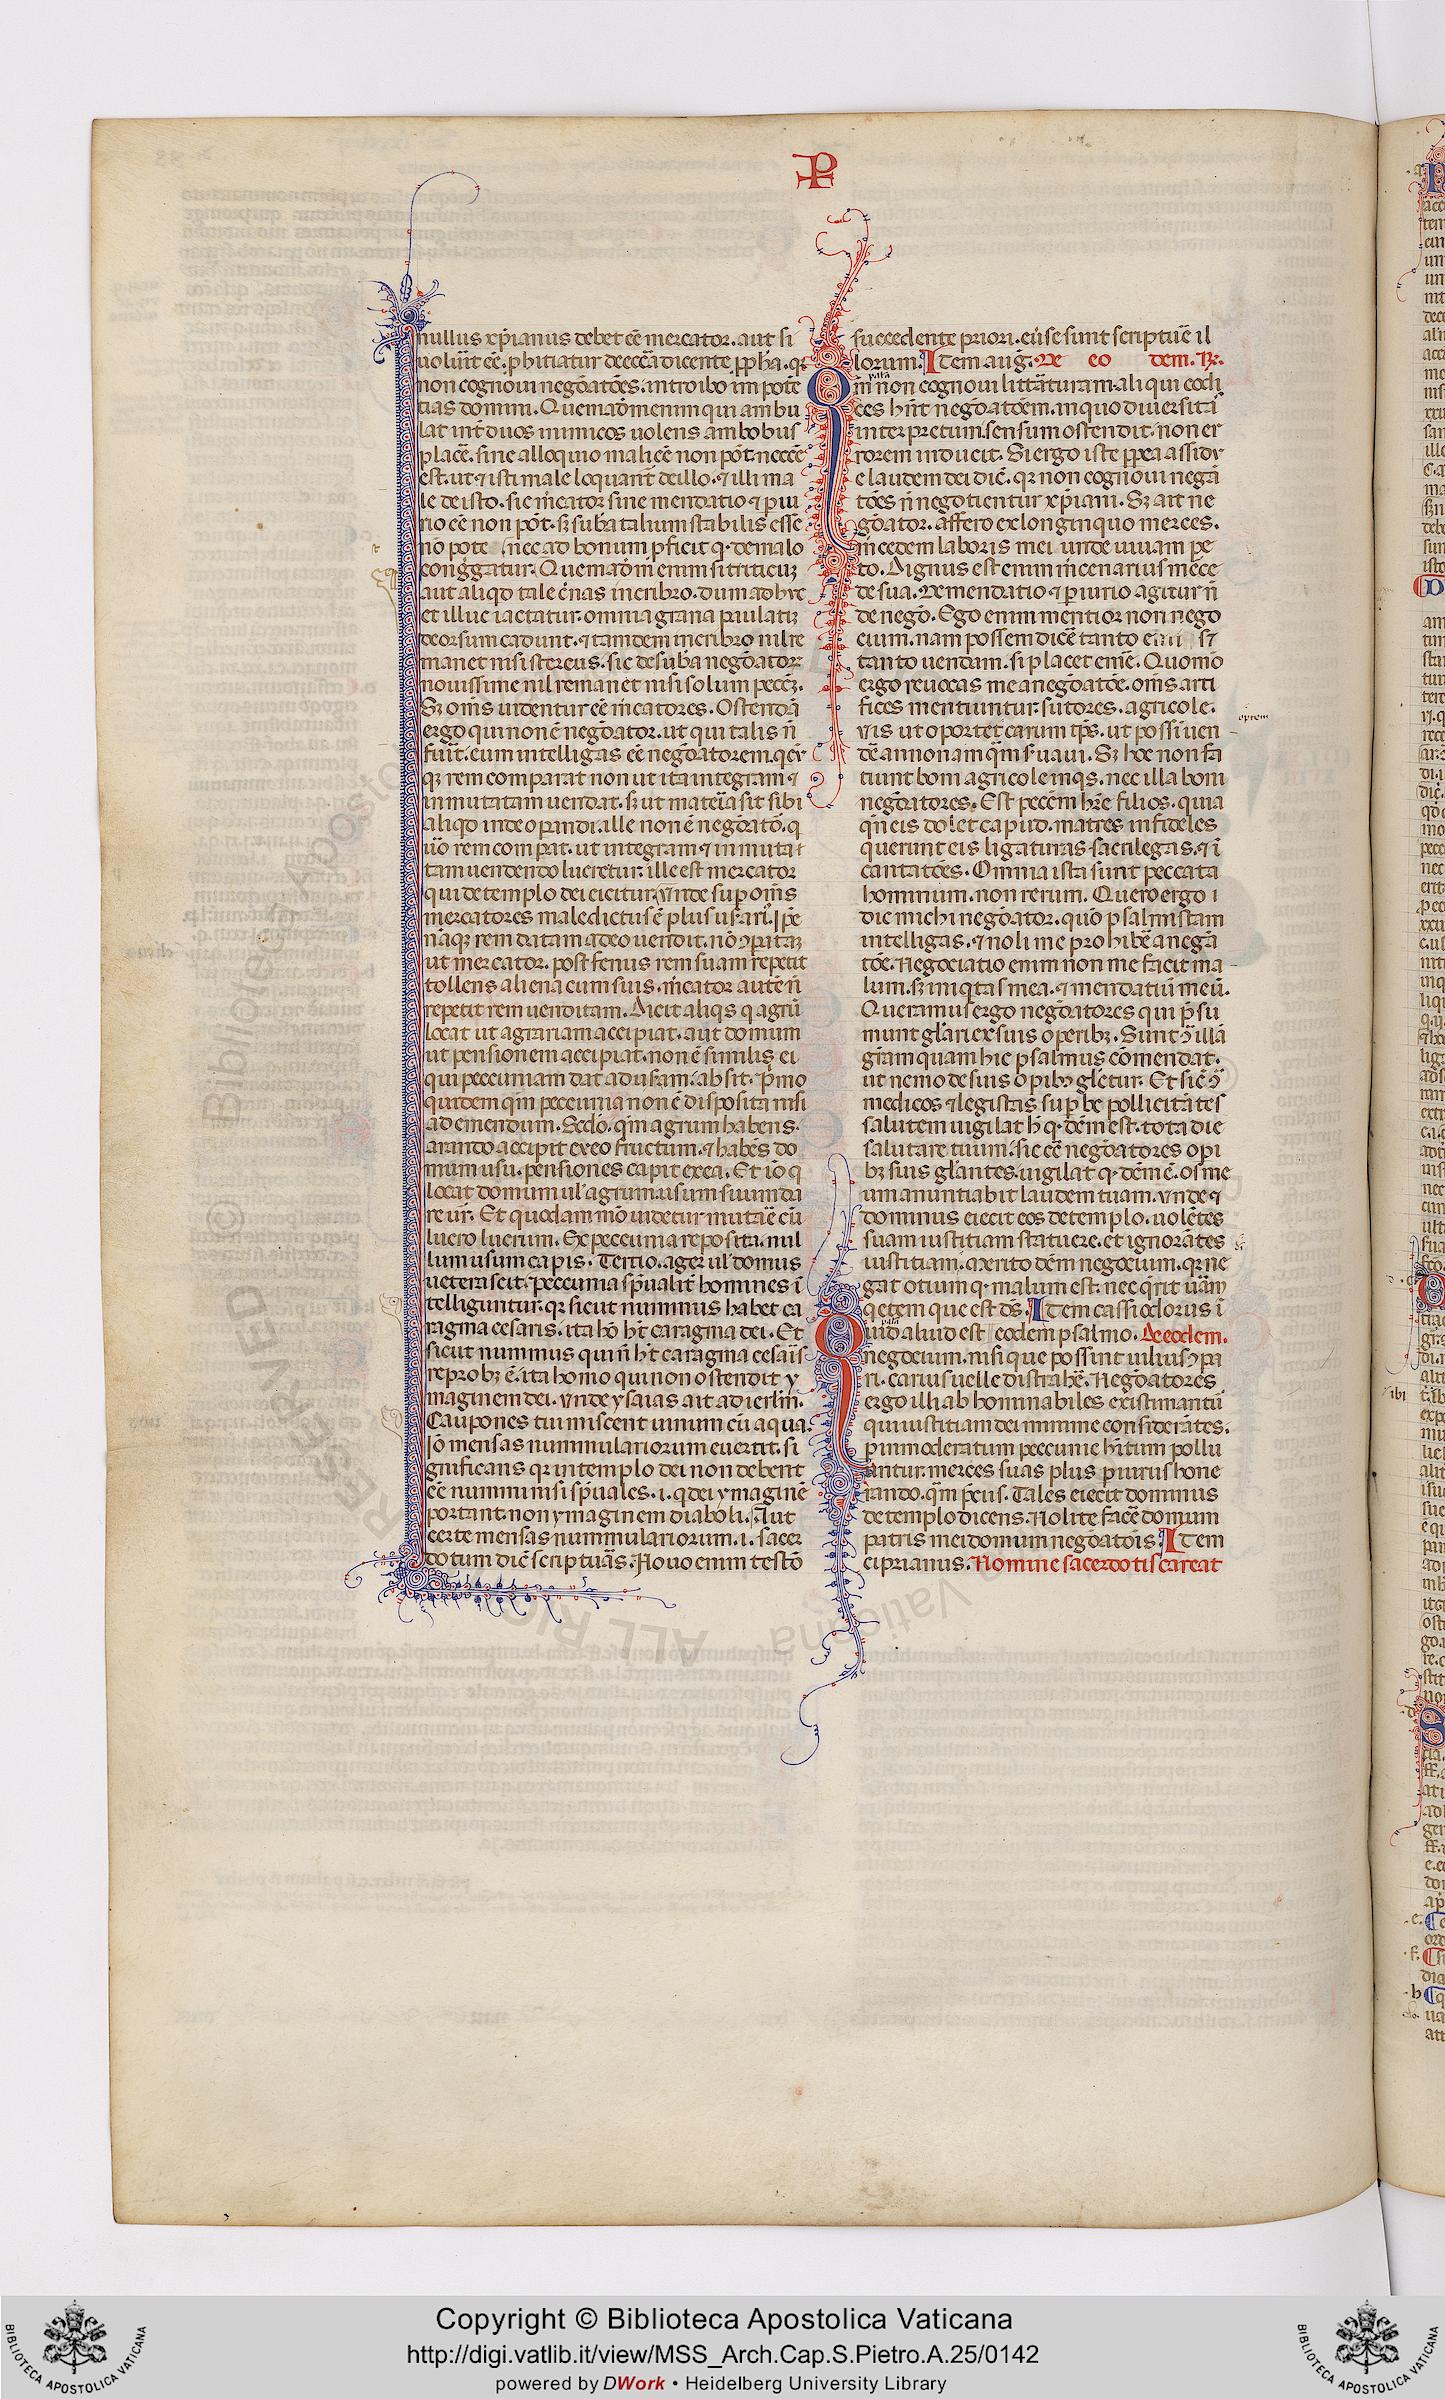 P
nullus xp̄ianus debet eē mercator. aut si
uolūt eē. phitiatur de eccā dicente ꝓph̄a. qꝛ
non cognoui negōatōes. introibo in potē
tias domini. Quemadm̄ enim qui ambu
lat int̄ duos inimicos uolens ambobus
placē. sine alloquio mali eē non pōt. necēē
est. ut ⁊ isti male loquant̄ de illo. ⁊ illi ma
le de isto. sic m̄cator sine mendatio ⁊ ꝑiu
rio eē non pōt. sꝫ suba talium stabilis esse
nō pote nec ad bonum ꝓficit q̇ de malo
congregatur. Quemadm̄ enim si triticuꝫ
aut aliqd tale c̄nas in cribro. dum ad huc
et illuc iactatur. omnia grana paulatiꝫ
deorsum cadunt. ⁊ tandem in cribro nil re
manet nisi stercus. sic de suba negōatoꝝ
nouissime nil remanet nisi solum pecc̄ꝫ.
Sꝫ om̄s uidentur eē m̄catores. Ostendā
ergo qui non ē negōator. ut qui talis n̄
fu'it. eum intelligas eē negōatorem. qc̄ꝫ
qꝫ rem comparat non ut ita integram ⁊
inmutatam uendat. sꝫ ut mat̄ia sit sibi
aliqd inde oꝑandi. ille non ē negōatō. q̇
ūo rem comꝑat. ut integram ⁊ inmuta
tam uendendo lucretur. ille est mercator
qui de templo dei eicitur. vnde suꝑ om̄s
mercatores maledictus ē plus usārī. Ipē
nāqꝫ rem datam a deo uendit. nō ꝯꝑataꝫ
ut mercator. post fenus rem suam repetit
tollens aliena cum suis. m̄cator autē n̄
repetit rem uenditam. Dicit aliqs q̇ agrū
locat ut agrariam accipiat. aut domum
ut pensionem accipiat. non ē similis ei
qui peccuniam dat ad usām. absit. p̄mo
quidem qm̄ peccunia non ē disposita nisi
ad emendum. Scdo. qm̄ agrum habens.
arando accipit ex eo fructum. ⁊ habēs do
mum usū. pensiones capit ex ea. Et iō q̇
locat domum ul' agrum. usum suum da
re ur̄. Et quodam mō uidetur mutāē cū
lucro lucrum. Ex peccunia reposita. nul
lum usum capis. Tertio. ager ul' domus
ueterascit. peccunia sp̄ualit̄ homines ī
telliguntur. qꝛ sicut nummus habet ca
ragma cesaris. ita hō ht̄ caragma dei. Et
sicut nummus qui n̄ ht̄ caragma cesaīs
reprobꝫ ē. ita homo qui non ostendit y
maginem dei. vnde ysaias ait ad ierl'm.
Caupones tui miscent uinum cū aqua.
Iō mensas nummulariorum euertit. si
gnificans qꝛ in templo dei non debent
eē nummi nisi sp̄uales. i. q̇ dei ymaginē
portant. non ymaginem diaboli. Aut
certe mensas nummulariorum. i. sacer
dotum dic̄ scripturās. Nouo enim testō
succedente priori. euerse sunt scriptuē il
lorum. Item aug̃. De eo dem. R.
Qm̄ non cognoui littāturam. aliqui codi
ces hn̄t negōatōem. in quo diuersitā
interpretum. sensum ostendit. non er
rorem inducit. Si ergo iste ꝓpea assidu
e laudem dei dic̄. qꝛ non cognoui negā
tōes n̄ negotientur xp̄iani. Sꝫ ait ne
gōator. affero ex longinquo merces.
m̄cedem laboris mei unde uiuam pe
to. Dignus est enim m̄cenarius m̄ce
de sua. De mendatio ⁊ ꝑiurio agitur n̄
de negō. Ego enim mentior non nego
cium. nam possem dicē tanto emi s⁊
tanto uendam. si placet emē. Quomō
ergo reuocas me a negōatōe. om̄s arti
fices mentiuntur. sutores. agricole.
uis ut oportet carum tp̄s. ut possī uen
dē annonam qm̄ s'uaui. Sꝫ hoc non fa
tiunt boni agricole inqs. nec illa boni
negōatores. Est pecc̄m hr̄e filios. quia
qn̄ eis dolet caput. matres infideles
querunt eis ligaturas sacrilegas. ⁊ ī
cantatōes. Omnia ista sunt peccata
hominum. non rerum. Quero ergo i
dic michi negōator. quō psalmistam
intelligas. ⁊ noli me prohibē a negā
tōe. Negociatio enim non me facit ma
lum. sꝫ iniqtas mea. ⁊ mendatiū meū.
Queramus ergo negōatores qui p̄su
munt gl'ari ex suis operibꝫ. Sunt ꝯ illā
gr̄am quam hic psalmus cōmendat.
ut nemo de suis oꝑibꝫ gl'etur. Et sic ꝯ
medicos ⁊ legistas suꝑbe pollicitātes
salutem uigilat h̄ q̇ dc̄m est. tota die
salutare tuum. sic cē negōatores opi
bꝫ suis gl'antes. uigilat q̇ dc̄m ē. os me
um anuntiabit laudem tuam. vnde ⁊
dominus eiecit eos de templo. uolētes
suam iustitiam statuere. et ignorātes
iustitiam. Merito dc̄m negocium. qꝛ ne
gat otium q̇ malum est. nec q̄rit uām
qetem que est ds̄. Item cassiodorus ī
Quid aliud est eodem psalmo. De eodem.
negocium. nisi que possint uilius ꝯpa
ri. carius uelle distrahē. Negōatores
ergo illi abhominabiles existimantū
qui iustitiam dei minime considerātes.
ꝑ inmoderatum peccunie hītum pollu
untur. merces suas plus ꝑiuris hone
rando. qm̄ p̄ciis. Tales eiecit dominus
de templo dicens. Nolite facē domum
patris mei domum negōatōis. Item
ciprianus. Nomine sacerdotis careat
optem
Copyright © Biblioteca Apostolica Vaticana
http://digi.vatlib.it/view/MSS_Arch.Cap.S.Pietro.A.25/0142
powered by DWork • Heidelberg University Library
BIBLIOTECA APOSTOLICA VATICANA
BIBLIOTECA APOSTOLICA VATICANA